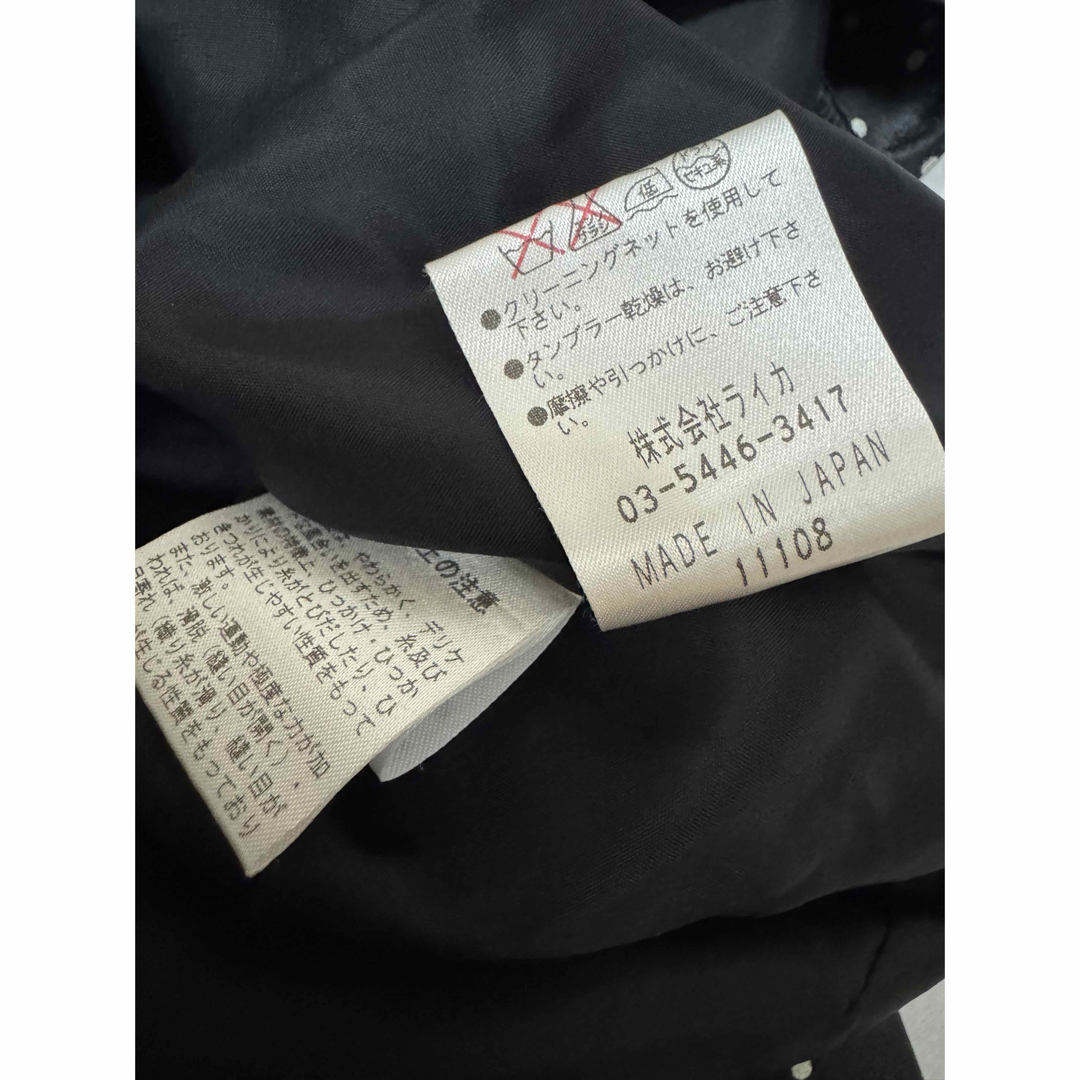 低
ドライ
セキユ系
●クリーニングネットを使用して
下さい。
●タンブラー乾燥は、お避け下さ
い。
●摩擦や引つかけに、ご注意下さ
い。
株式会社ライカ
03-5446-3417
MADE IN JAPAN
11108
上の注意
やわらかく、デリケ
風合いを出すため、糸及び
素材の特徴上、ひっかけ・ひっか
かりにより糸がとびだしたり、ひ
きつれが生じやすい性質をもって
おります。
また、激しい運動や極度な力が加
われば、滑脱（縫い目が開く）、
目寄れ（織り糸が滑り、縫い目が
生じる性質をもっており